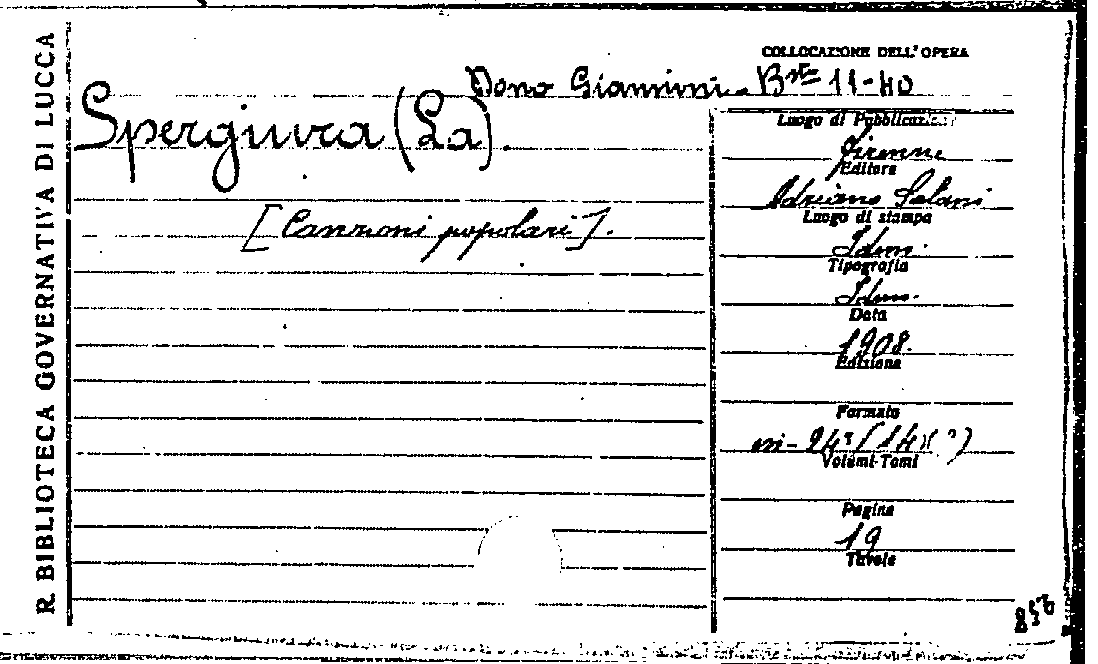 R. BIBLIOTECA GOVERNATIVA DI LUCCA
COLLOCAZIONE DELL' OPERA
Dono Giannini Bte 11-40
Spergiura (La).
[Canzoni popolari].
Luogo di Pubblicazione
Firenze
Editore
Adriano Salani
Luogo di stampa
Idem.
Tipografia
Idem.
Data
1908.
Edizione
Formato
in-24°
Volumi-Tomi
Pagine
19
Tavole